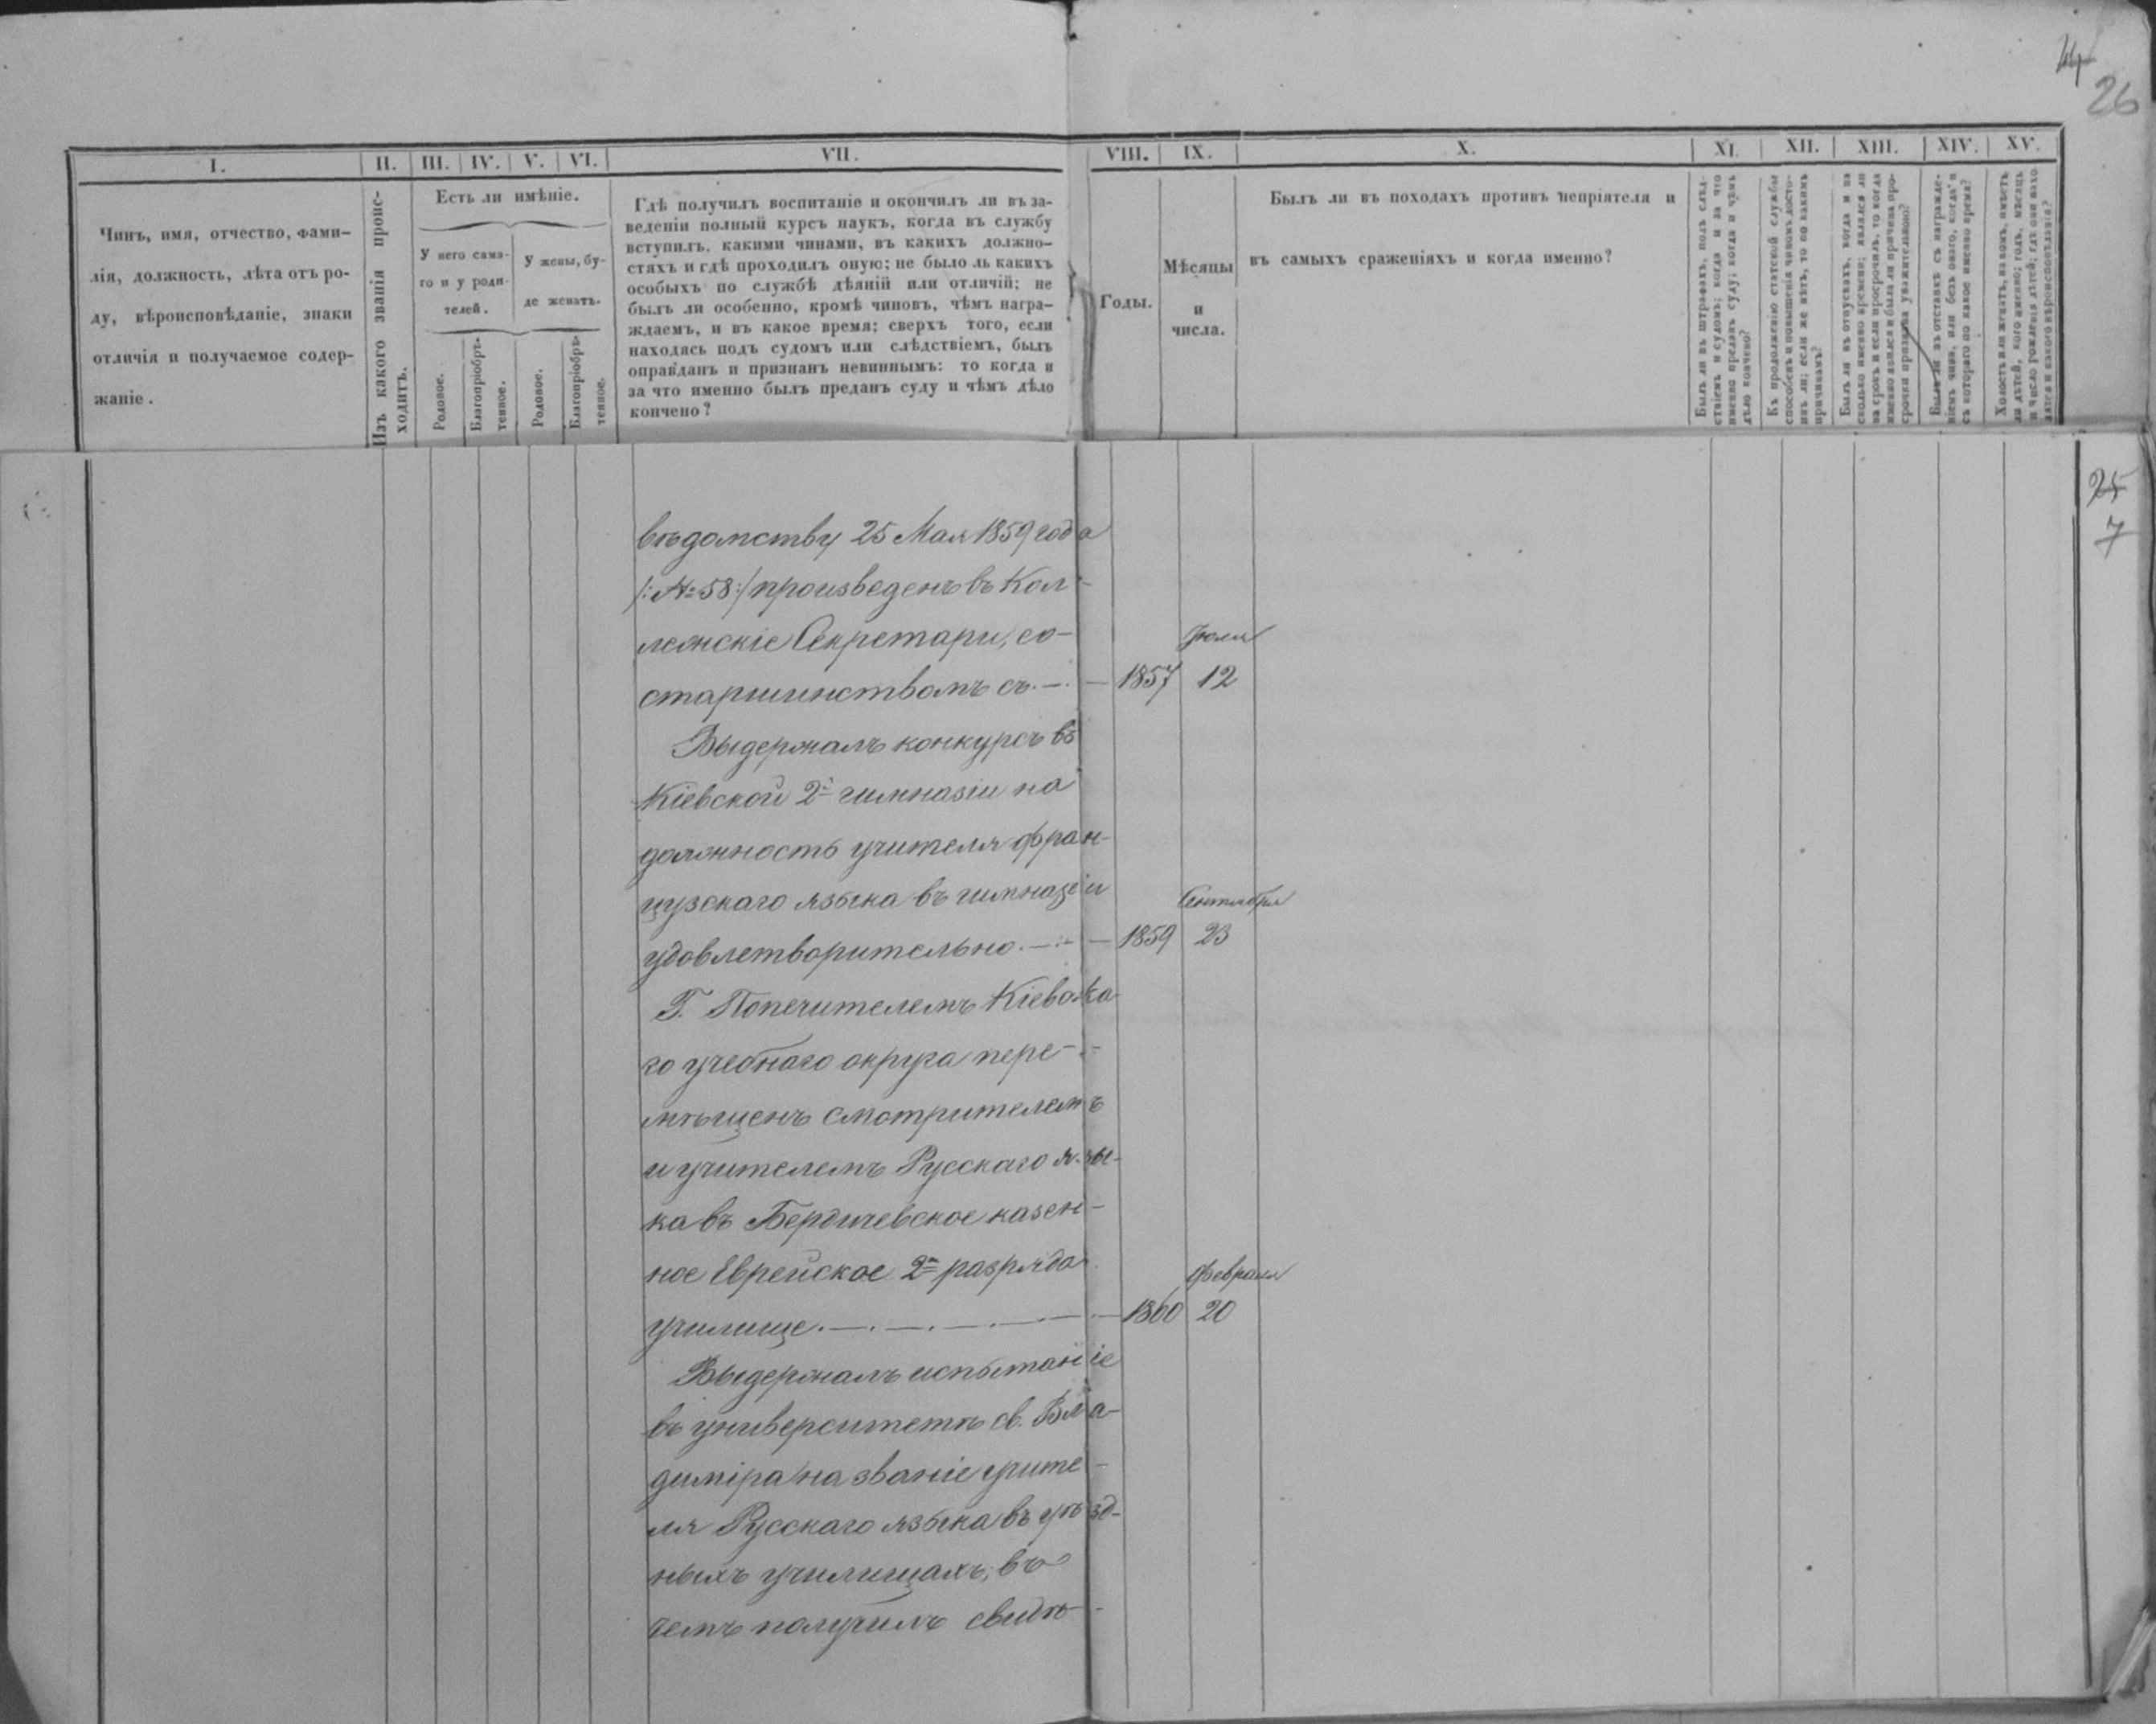 44
26
I. II. III. IV. V. VI. VII. VIII. IX. X. XI. XII. XIII. XIV. XV.
Чинъ, имя, отчество, фами-
лія, должность, лѣта отъ ро-
ду, вѣроисповѣданіе, знаки
отличія и получаемое содер-
жаніе.
Изъ какого званія проис-
ходитъ.
Есть ли имѣніе.
У него сама-
го и у роди-
телей.
У жены, бу-
де женатъ.
Родовое.
Благопріобрѣ-
тенное.
Родовое.
Благопріобрѣ-
тенное.
Гдѣ получилъ воспитаніе и окончилъ ли въ за-
веденіи полный курсъ наукъ, когда въ службу
вступилъ, какими чинами, въ какихъ должно-
стяхъ и гдѣ проходилъ оную; не было ль какихъ
особыхъ по службѣ дѣяній или отличій; не
былъ ли особенно, кромѣ чиновъ, чѣмъ награ-
ждаемъ, и въ какое время; сверхъ того, если
находясь подъ судомъ или слѣдствіемъ, былъ
оправданъ и признанъ невиннымъ: то когда и
за что именно былъ преданъ суду и чѣмъ дѣло
кончено?
Годы.
Мѣсяцы
и
числа.
Былъ ли въ походахъ противъ непріятеля и
въ самыхъ сраженіяхъ и когда именно?
Былъ ли въ штрафахъ, подъ слѣд-
ствіемъ и судомъ; когда и за что
именно преданъ суду; когда и чѣмъ
дѣло кончено?
Къ продолженію статской службы
способенъ и повышенія чиномъ досто-
инъ ли; если же нѣтъ, то по какимъ
причинамъ?
Былъ ли въ отпускахъ, когда и на
сколько именно времени; явился ли
на срокъ и если просрочилъ, то когда
именно явился и была ли причина про-
срочки признана уважительною?
Былъ ли въ отставкѣ съ награжде-
ніемъ чина, или безъ онаго, когда и
съ котораго по какое именно время?
Холостъ или женатъ, на комъ, имѣетъ
ли дѣтей, кого именно; годъ, мѣсяцъ
и число рожденія дѣтей; гдѣ они нахо-
дятся и какого вѣроисповѣданія?
25
7
вѣдомству 25 Мая 1859 года
/:№ 58:/ произведенъ въ Кол-
лежскіе Секретари, со-
старшинствомъ съ. — . — 1857 Іюля 12
Выдержалъ конкурсъ въ
Кіевской 2й гимназіи на
должность учителя фран-
цузскаго языка въ гимназіи
удовлетворительно. — . — 1859 Сентября 23
Г. Попечителемъ Кіевска-
го учебнаго округа пере-
мѣщенъ смотрителемъ
и учителемъ Русскаго язы-
ка въ Бердичевское казен-
ное Еврейское 2го разряда
училище. — . — . — . — 1860 Февраля 20
Выдержалъ испытаніе
въ университетѣ св. Вла-
диміра на званіе учите-
ля Русскаго языка въ уѣзд-
ныхъ училищахъ, въ
чемъ получилъ свидѣ-